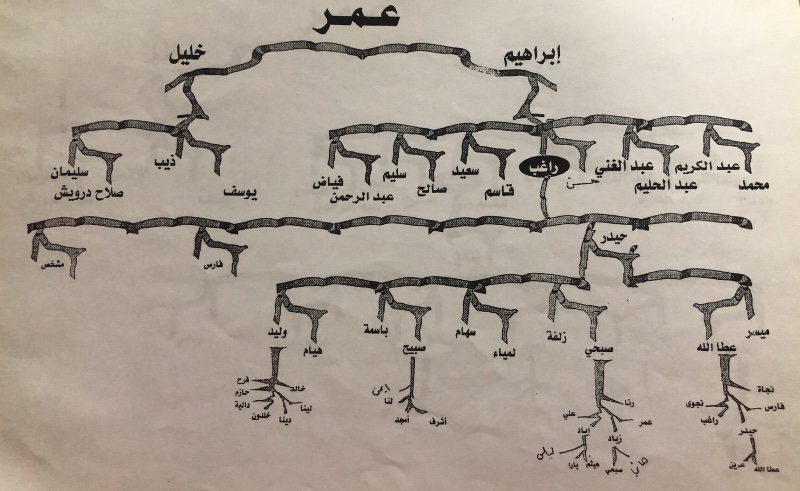 عمر
إبراهيم خليل
محمد عبد الكريم عبد الحليم عبد الغني حسن راغب قاسم سعيد صالح سليم عبد الرحمن فياض
يوسف ذيب صلاح درويش سليمان
حيدر فارس مشخص
ميسر عطا الله صبحي زلفة لمياء سهام صبيح باسمة هيام وليد
نجاة فارس حيدر راغب نجوى
عطا الله عرين
رنا عمر زياد إياد علي
صبحي هيثم يارا ليلى
أيمن لنا أمجد أشرف
خالد لينا دينا خلدون دالية حازم فرح